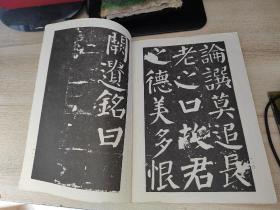 論譔莫追長
老之口故君
之德美多恨
闕遺銘曰